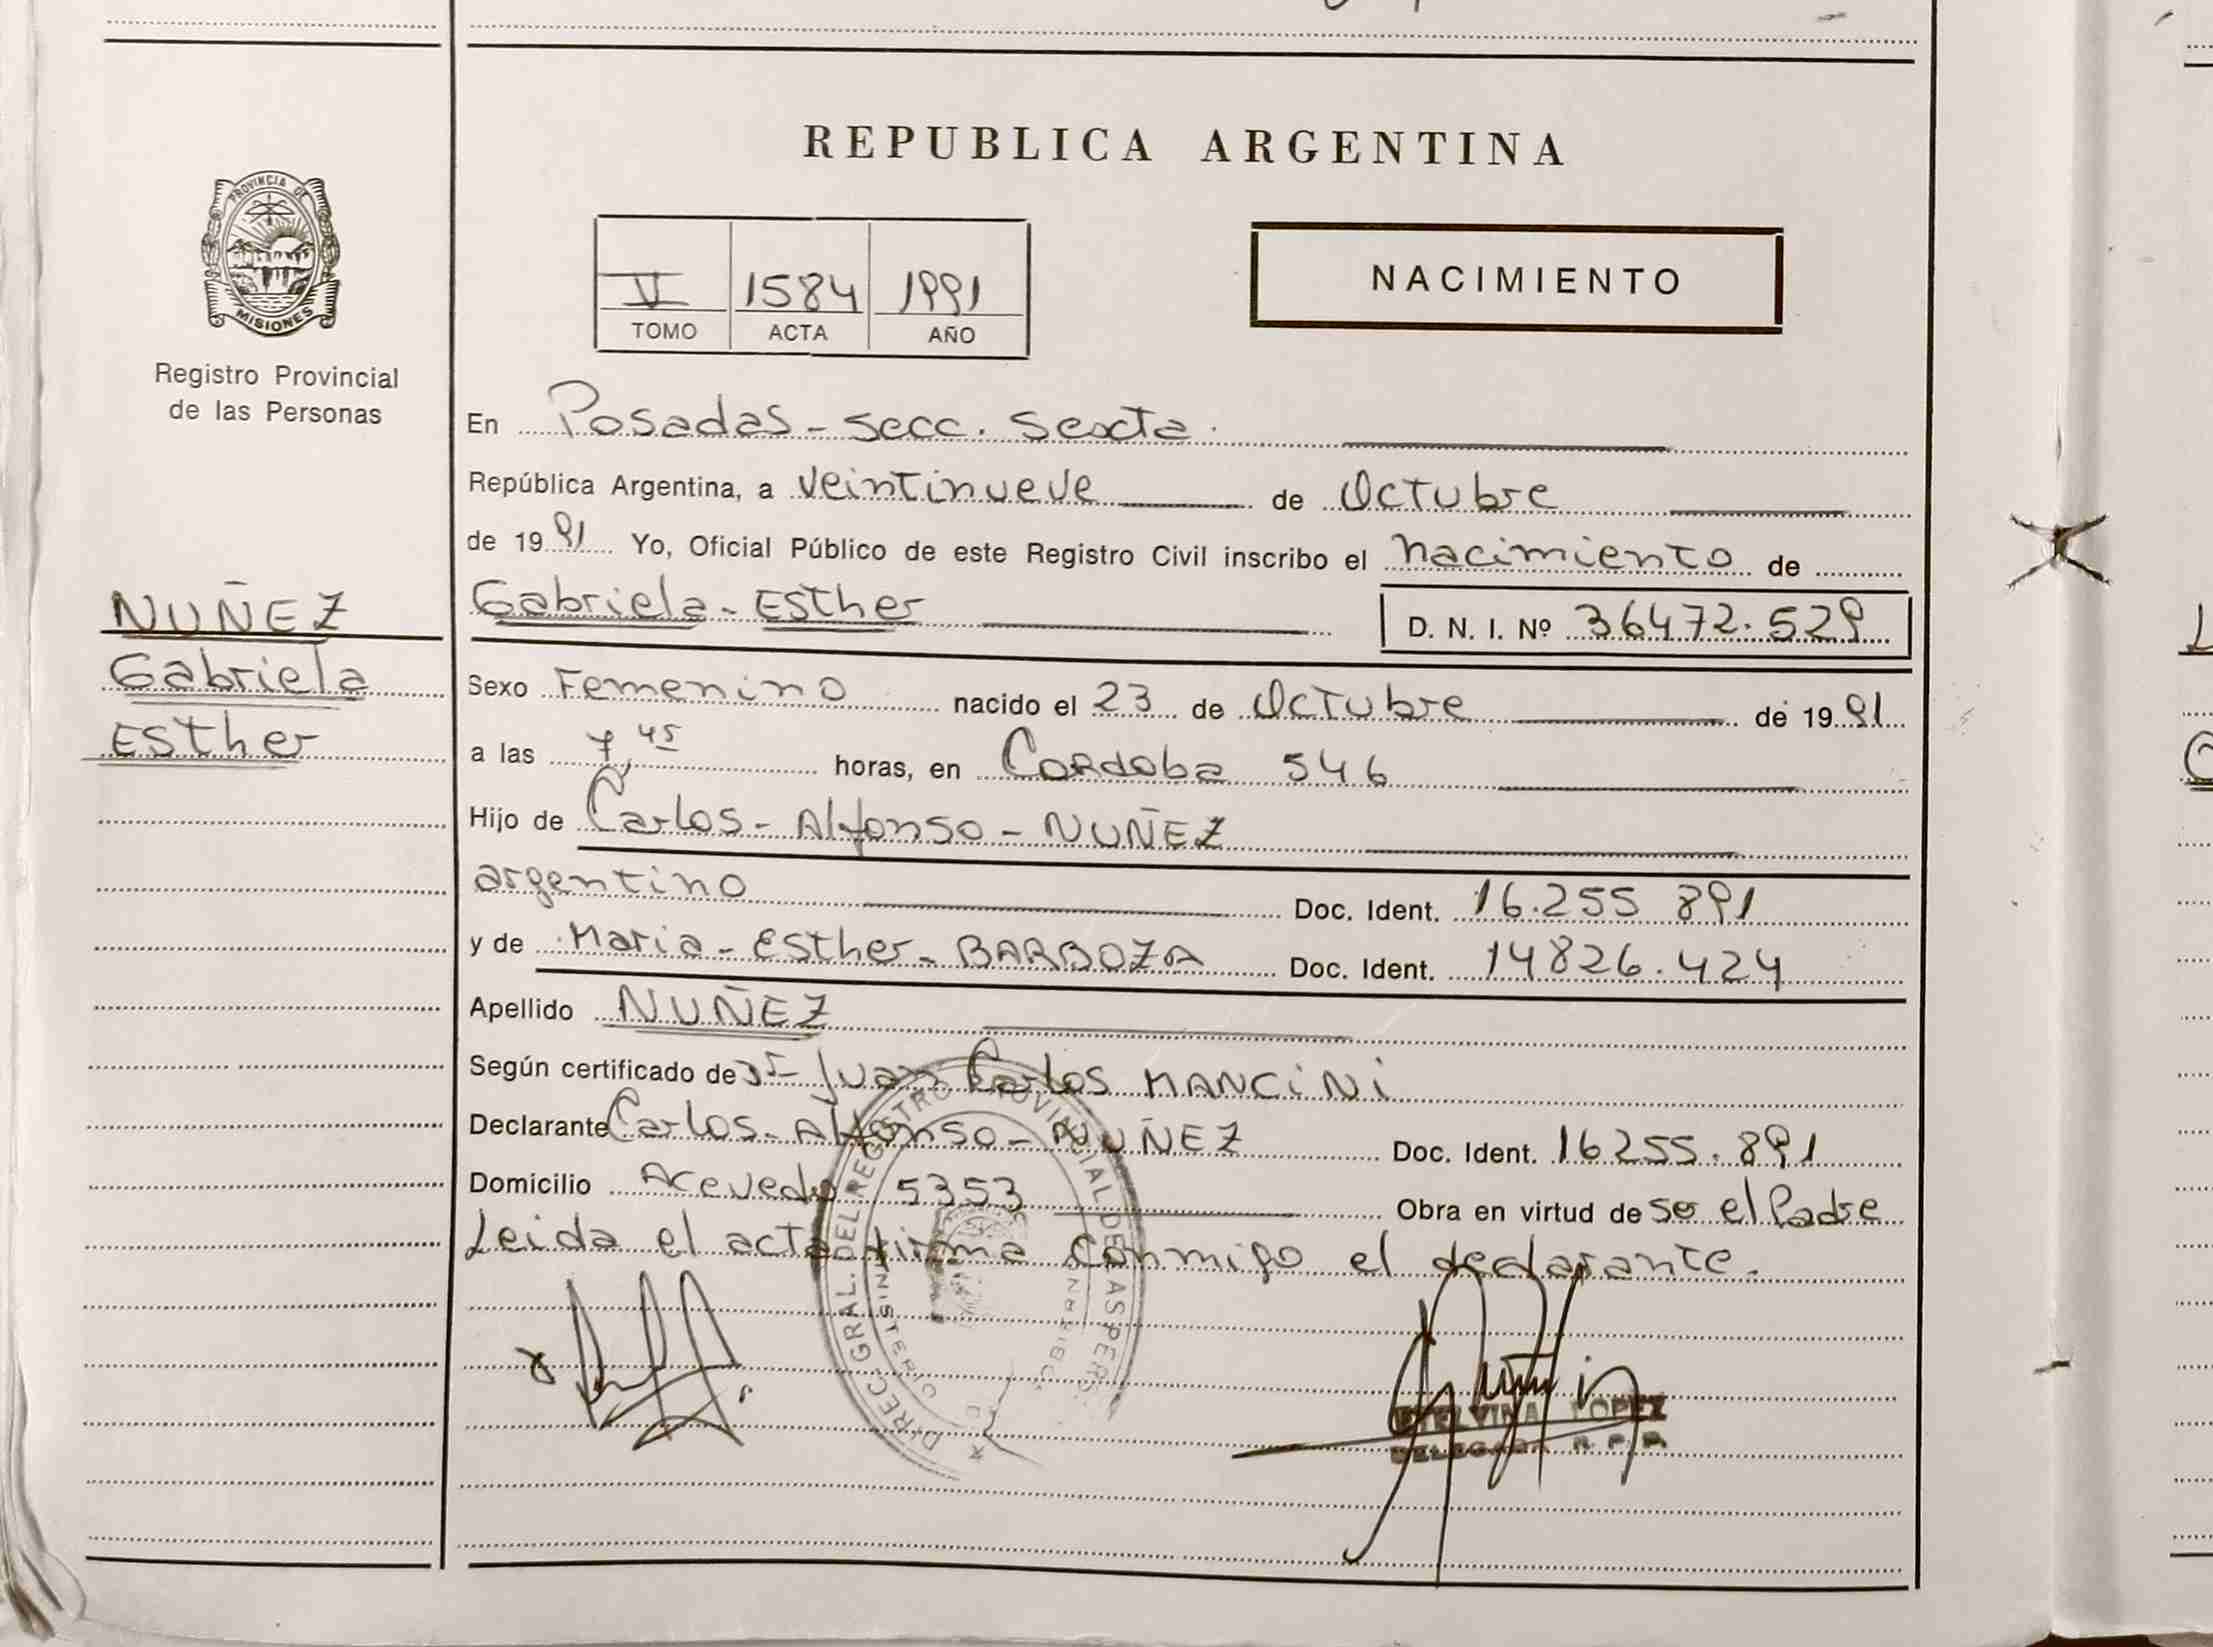 REPUBLICA ARGENTINA
PROVINCIA DE
MISIONES
Registro Provincial
de las Personas
V 1584 1991
TOMO ACTA AÑO
NACIMIENTO
En Posadas - Secc. Sexta.
República Argentina, a veintinueve de Octubre
de 1991 Yo, Oficial Público de este Registro Civil inscribo el nacimiento de
Gabriela - Esther D. N. I. Nº 36472.529
NUÑEZ
Gabriela
Esther
Sexo Femenino nacido el 23 de Octubre de 1991
a las 7,45 horas, en Cordoba 546
Hijo de Carlos - Alfonso - NUÑEZ
argentino Doc. Ident. 16.255 891
y de Maria - Esther - BARBOZA Doc. Ident. 14826.424
Apellido NUÑEZ
Según certificado de Juan Carlos MANCiNi
Declarante Carlos - Alfonso - NUÑEZ Doc. Ident. 16255.891
Domicilio Acevedo 5353 Obra en virtud de ser el Padre
Leida el acta firma conmigo el declarante.
DIREC. GRAL. DEL REGISTRO PROVINCIAL DE LAS PERS
MINISTERIO
GOBIERNO
ETELVINA LOPEZ
DELEGADA R. P. P.